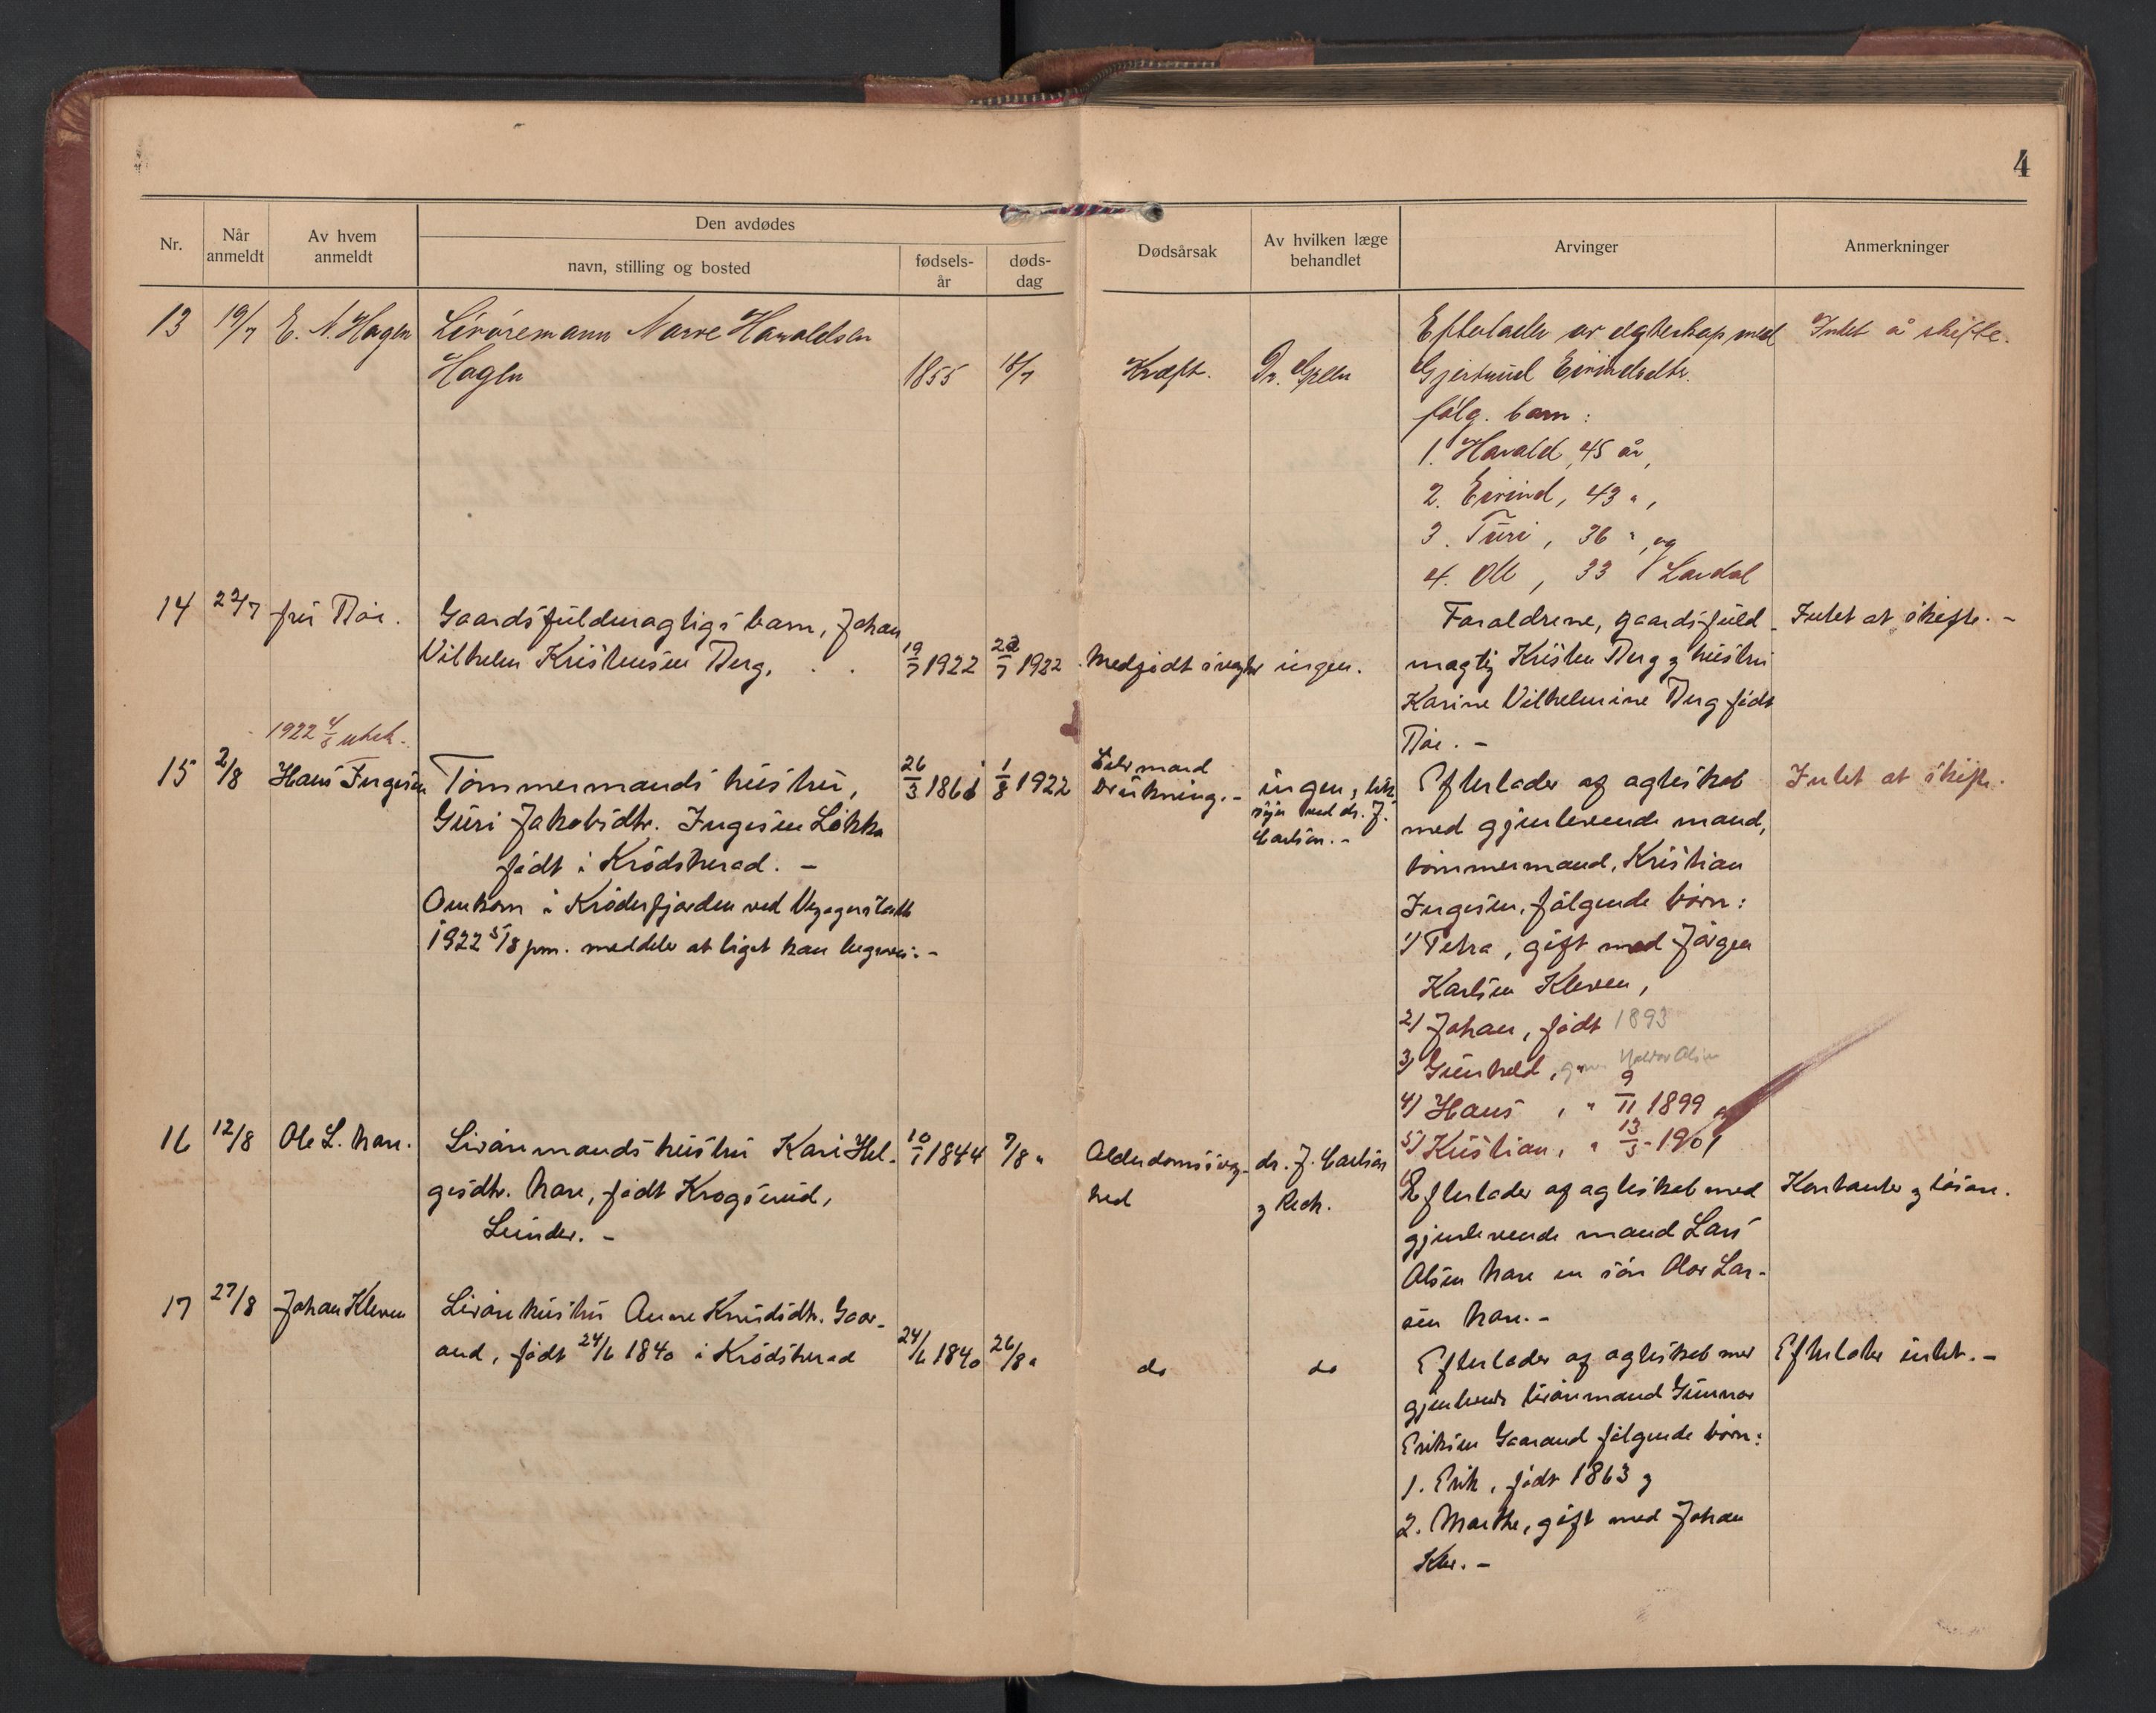 4
Nr.
Når anmeldt
Av hvem anmeldt
Den avdødes
navn, stilling og bosted
fødsels-år
døds-dag
Dødsårsak
Av hvilken læge behandlet
Arvinger
Anmerkninger
13 19/7 E. N. Hagen
Livøremann Narve Havaldsen
Hagen
1855 18/7 Kræft. Dr.
Efterlader av ekteskap med
Gjertrud Eivindsdtr.
følg. barn:
1. Havald, 45 år,
2. Eivind, 43 " ,
3. Turi, 36 " , og
4. Ole, 33 i Lardal
Intet å skifte.
14 22/7 fru Bøe.
Gaardsfuldmægtigs barn, Johan
Vilhelm Kristensen Berg,
19/7 1922 22/7 1922 Medfødt svaghet ingen.
Foraldrene, gaardsfuld-
mægtig Kristen Berg og hustru
Karine Vilhelmine Berg født
Bøe. -
Intet at skifte. -
1922 4/8
15 2/8 Hans Ingesen
Tømmermands hustru,
Guri Jakobsdtr. Ingesen Løkka
født i Krødsherad. -
Omkom i Krøderfjorden ved
1922 5/8 pm. meddeles at liget kan begraves. -
26/3 1861 1/8 1922
Selvmord
Drukning. -
ingen, lik-
syn ved dr. J.
Carlsen. -
Efterlader af ægteskab
med gjenlevende mand,
tømmermand, Kristian
Ingesen, følgende børn:
1) Petra, gift med Jørgen
Karlsen Kleven,
2) Johan, født 1893
3) Gunhild, Halvor Olsen
4) Hans, " 9/11 1899 og
5) Kristian, " 13/3 - 1901
Intet at skifte.
16 12/8 Ole L. Mare.
Livøremands hustru Kari Hel-
gesdtr. Mare, født Krogsrud,
Lunder. -
10/1 1844 7/8 "
Alderdomssvag-
hed
dr. J. Carlsen
og Rech.
Efterlader af ægteskab med
gjenlevende mand Lars
Olsen Mare en søn Olav Lar-
sen Mare. -
Kontanter og løsøre.
17 27/8 Johan Kleven
Livørehustru Anne Knudsdtr. Gaar-
and, født 24/6 1840 i Krødsherad
24/6 1840 26/8 "
do do
Efterlader af ægteskab med
gjenlevende livøremand Gunnar
Eriksen Gaarand følgende børn:
1. Erik, født 1863 og
2. Marthe, gift med Johan
Klev. -
Efterlater intet. -